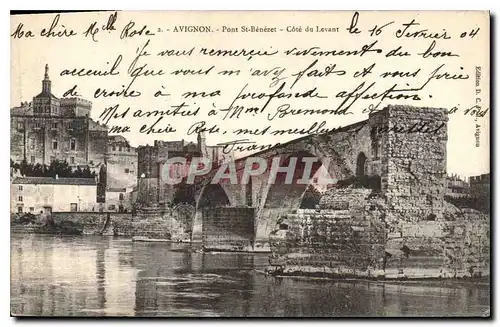 Ma chère Mlle Rose
2. - AVIGNON. - Pont St-Bénézet - Côté du Levant
Le 16 Février 04
Je vous remercie vivement du bon
accueil que vous m'avez faits et vous prie
de croire à ma profonde affection.
Mes amitiés à Mme Bremond et à vous
ma chère Rose, mes meilleures
Edition D. C. Avignon
CPARAMA